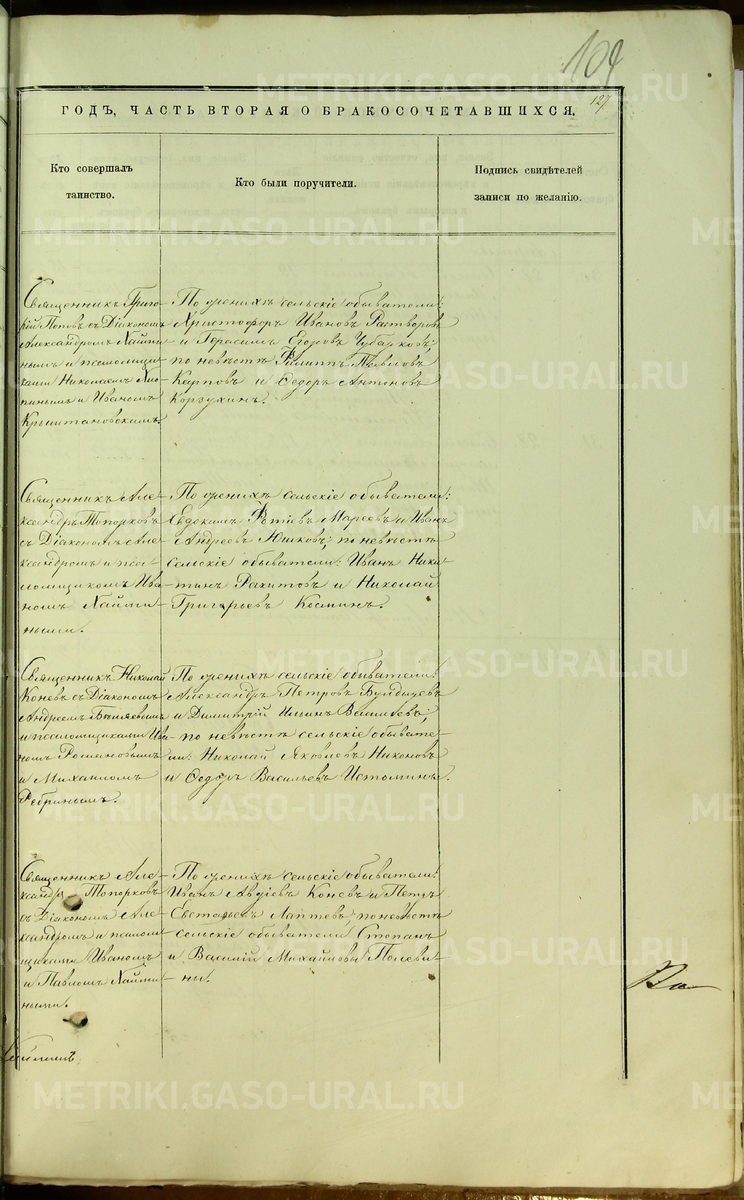 109
127
ГОДЪ, ЧАСТЬ ВТОРАЯ О БРАКОСОЧЕТАВШИХСЯ.
Кто совершалъ
таинство.
Кто были поручители.
Подпись свидѣтелей
записи по желанію.
Священникъ Григо-
рій Поповъ съ Діакономъ
Александромъ Хайми-
нымъ и псаломщи-
ками Николаемъ
и Иваномъ
Крыштановскимъ.
По женихѣ сельскіе обыватели:
Христофоръ Ивановъ Растворовъ
и Герасимъ Егоровъ
по невѣстѣ Филиппъ Павловъ
Карповъ и Ѳедоръ Антоновъ
Корзухинъ.
Священникъ Але-
ксандръ Топорковъ
съ Діакономъ Але-
ксандромъ и пса-
ломщикомъ Ива-
номъ Хайми-
ными.
По женихѣ сельскіе обыватели:
Евдокимъ Фотіевъ Марѣевъ и Иванъ
Андреевъ Юшковъ; по невѣстѣ
сельскіе обыватели: Иванъ Ники-
тинъ Рахитовъ и Николай
Григорьевъ Косминъ.
Священникъ Николай
Коневъ съ Діакономъ
Андреемъ Бѣляевымъ
и псаломщиками Ива-
номъ Романовымъ
и Михаиломъ
Ребринымъ.
По женихѣ сельскіе обыватели:
Александръ Петровъ Булдышевъ
и Димитрій Ильинъ Васильевъ;
по невѣстѣ сельскіе обывате-
ли: Николай Яковлевъ Никоновъ
и Ѳедоръ Васильевъ Истоминъ.
Священникъ Але-
ксандръ Топорковъ
съ Діакономъ Але-
ксандромъ и псалом-
щиками Иваномъ
и Павломъ Хайми-
ными.
По женихѣ сельскіе обыватели:
Иванъ Авдіевъ Коневъ и Петръ
Лаптевъ по невѣстѣ
сельскіе обыватели Степанъ
и Василій Михайловы Полеви-
ны.
METRIKI.GASO-URAL.RU